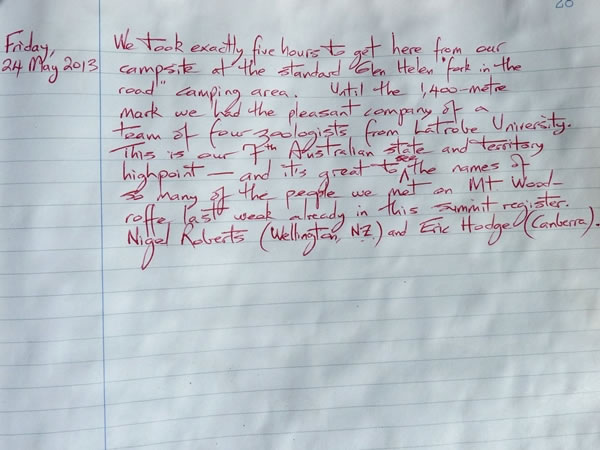 20
Friday,
24 May 2013
We took exactly five hours to get here from our
campsite at the standard Glen Helen "fork in the
road" camping area. Until the 1,400-metre
mark we had the pleasant company of a
team of four zoologists from Latrobe University.
This is our 7th Australian state and territory
highpoint — and it's great to see the names of
so many of the people we met on Mt Wood-
roffe last week already in this summit register.
Nigel Roberts (Wellington, N.Z.) and Eric Hodge (Canberra).